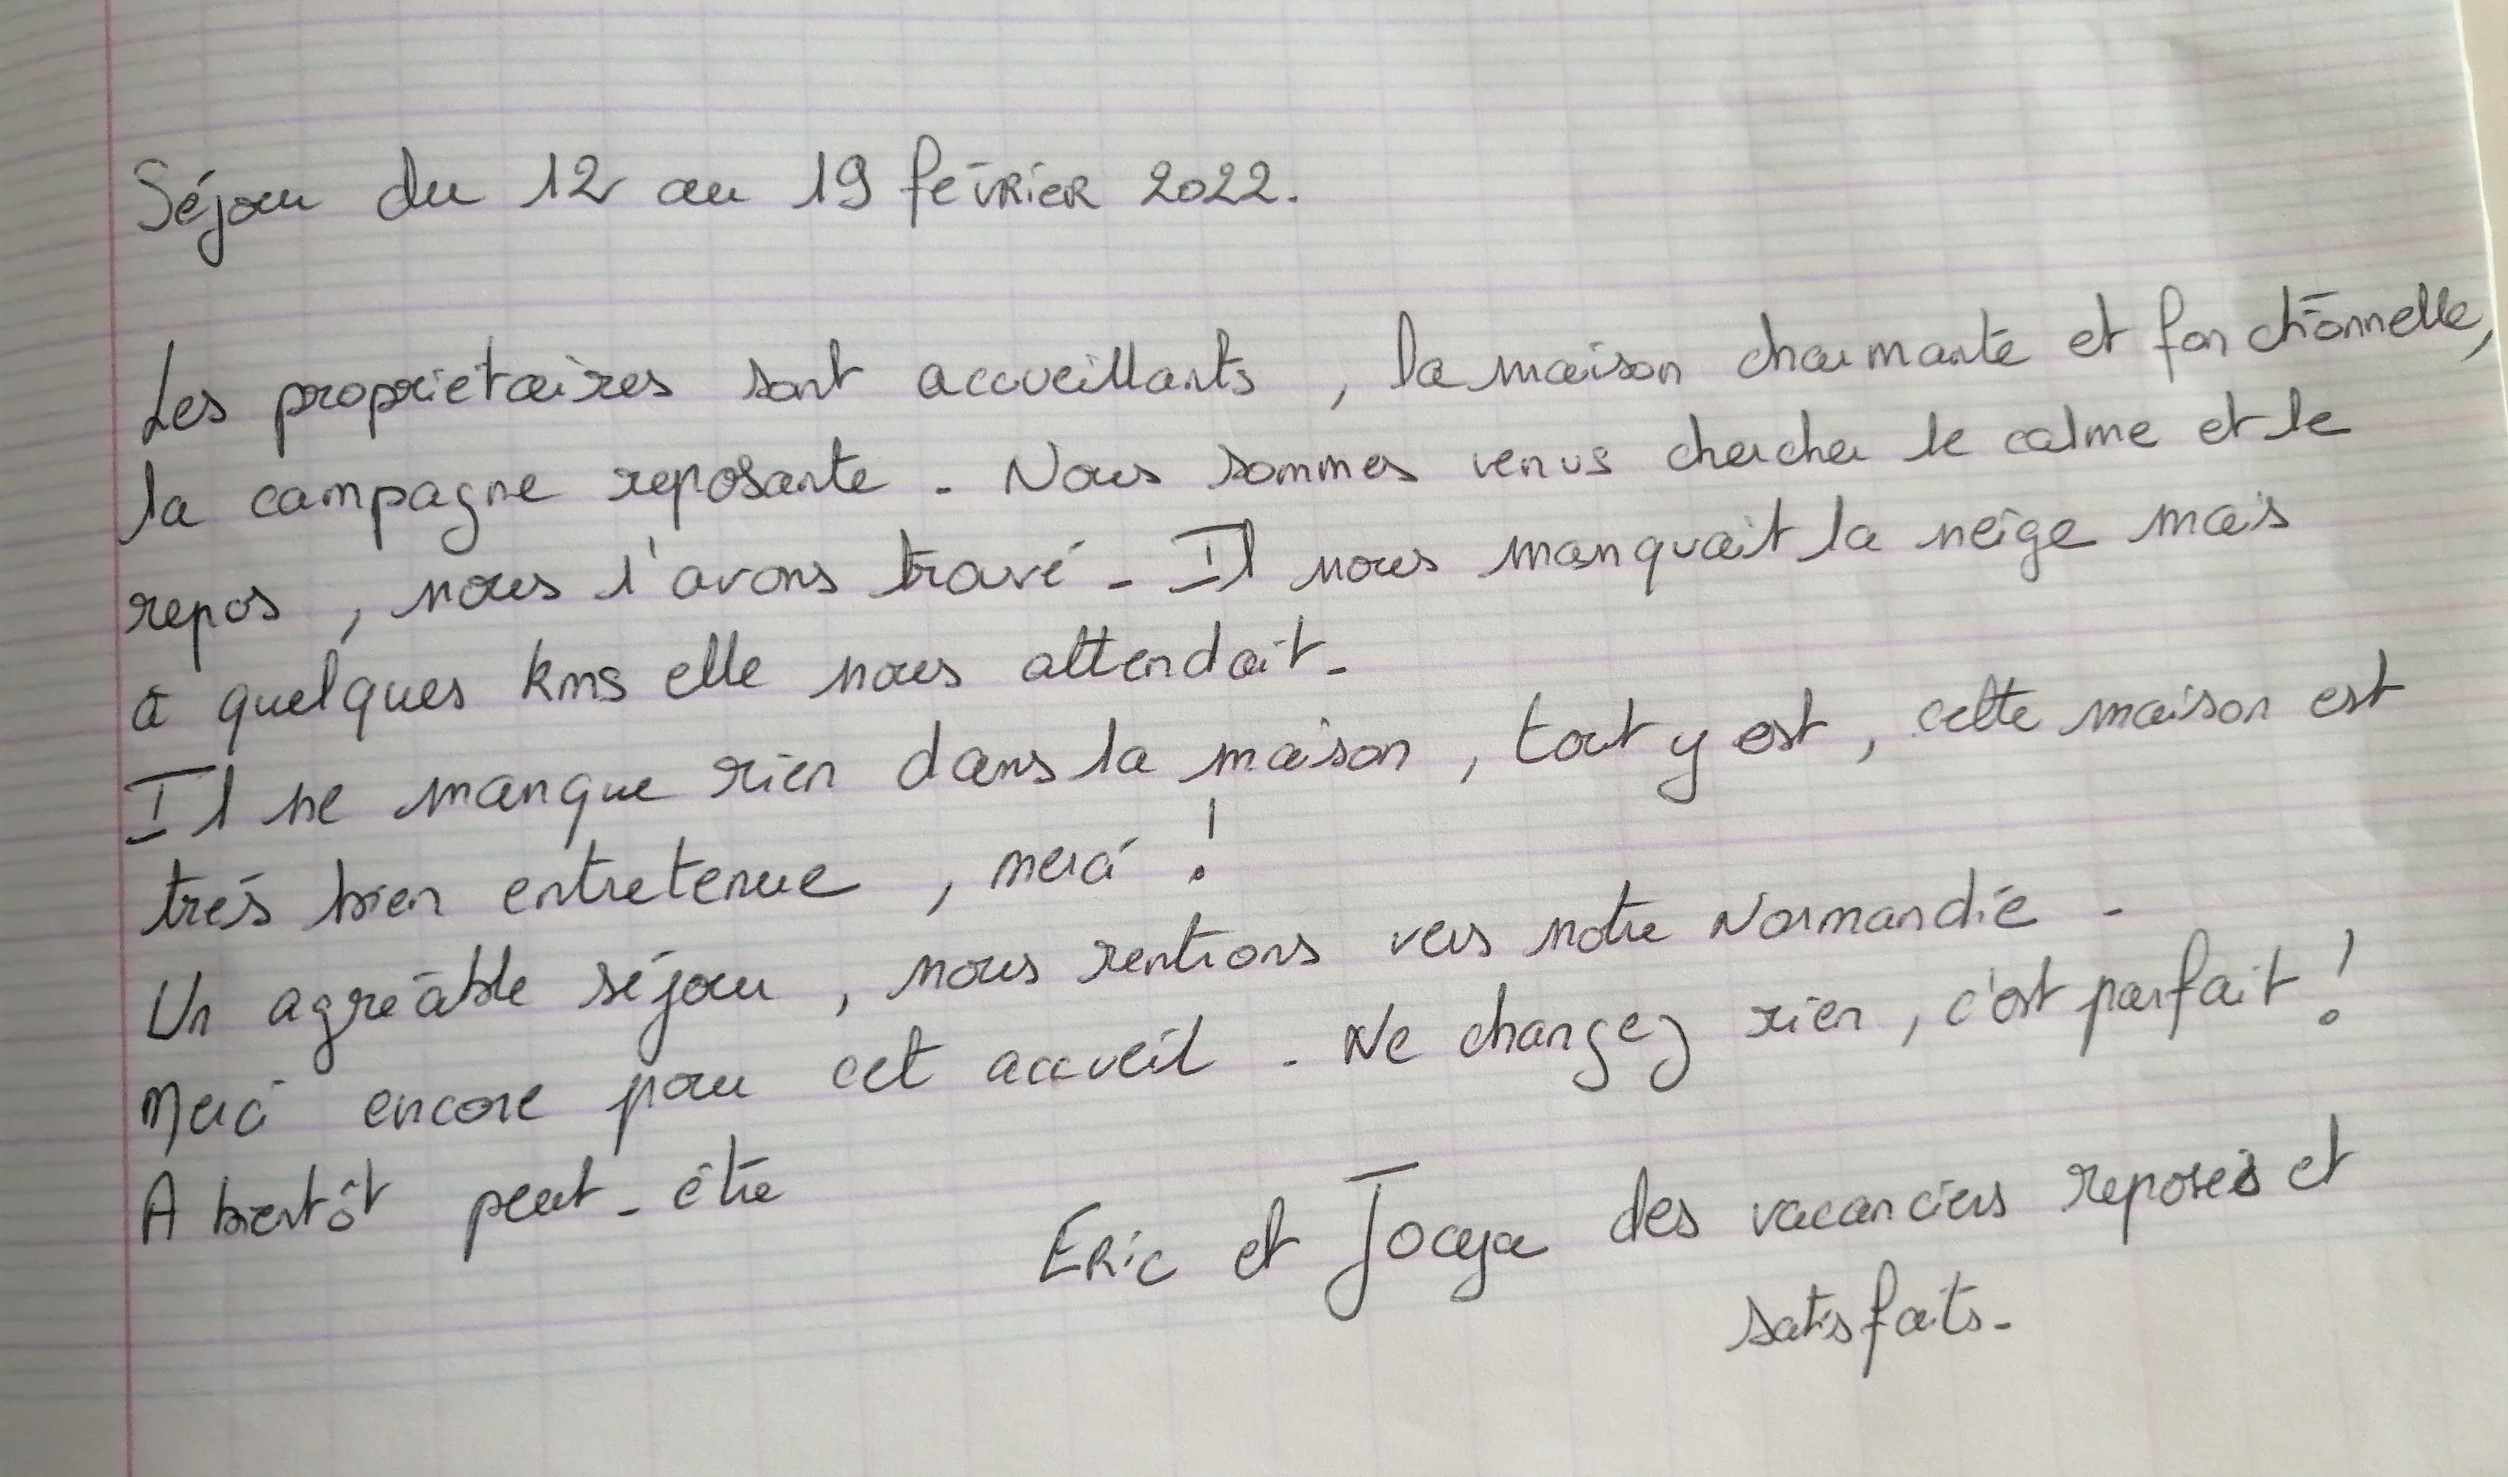 Séjour du 12 au 19 février 2022.
Les propriétaires sont accueillants, la maison charmante et fonctionnelle,
la campagne reposante. Nous sommes venus chercher le calme et le
repos, nous l'avons trouvé. Il nous manquait la neige mais
à quelques kms elle nous attendait.
Il ne manque rien dans la maison, tout y est, cette maison est
très bien entretenue, merci !
Un agréable séjour, nous rentrons vers notre Normandie.
Merci encore pour cet accueil. Ne changez rien, c'est parfait !
A bientôt peut-être
Eric et des vacanciers reposés et
satisfaits.